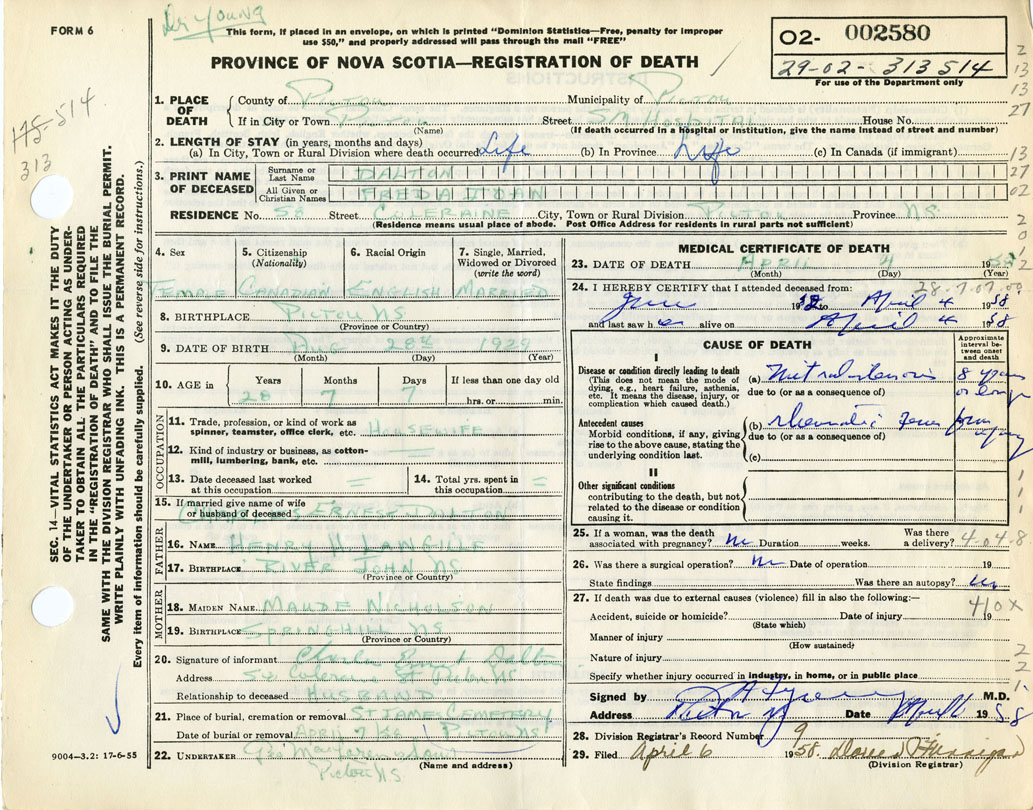 FORM 6
This form, if placed in an envelope, on which is printed "Dominion Statistics—Free, penalty for improper
use $50," and properly addressed will pass through the mail "FREE"
PROVINCE OF NOVA SCOTIA—REGISTRATION OF DEATH
02- 002580
29-02-313514
For use of the Department only
175-514
313
SEC. 14—VITAL STATISTICS ACT MAKES IT THE DUTY
OF THE UNDERTAKER OR PERSON ACTING AS UNDER-
TAKER TO OBTAIN ALL THE PARTICULARS REQUIRED
IN THE "REGISTRATION OF DEATH" AND TO FILE THE
SAME WITH THE DIVISION REGISTRAR WHO SHALL ISSUE THE BURIAL PERMIT.
WRITE PLAINLY WITH UNFADING INK. THIS IS A PERMANENT RECORD.
Every item of information should be carefully supplied. (See reverse side for instructions.)
1. PLACE OF DEATH County of Pictou Municipality of Pictou
If in City or Town Pictou Street SM Hospital House No.
(Name) (If death occurred in a hospital or institution, give the name instead of street and number)
2. LENGTH OF STAY (in years, months and days)
(a) In City, Town or Rural Division where death occurred Life (b) In Province Life (c) In Canada (if immigrant)
3. PRINT NAME OF DECEASED Surname or Last Name DALTON
All Given or Christian Names FREDA JOAN
RESIDENCE No. 58 Street COLERAINE City, Town or Rural Division PICTOU Province NS
(Residence means usual place of abode. Post Office Address for residents in rural parts not sufficient)
4. Sex 5. Citizenship (Nationality) 6. Racial Origin 7. Single, Married, Widowed or Divorced (write the word)
FEMALE CANADIAN ENGLISH MARRIED
8. BIRTHPLACE PICTOU NS
(Province or Country)
9. DATE OF BIRTH AUG 28th 1929
(Month) (Day) (Year)
10. AGE in Years Months Days If less than one day old
28 7 7 hrs. or min.
OCCUPATION
11. Trade, profession, or kind of work as spinner, teamster, office clerk, etc. HOUSEWIFE
12. Kind of industry or business, as cotton-mill, lumbering, bank, etc.
13. Date deceased last worked at this occupation = 14. Total yrs. spent in this occupation =
15. If married give name of wife or husband of deceased ERNEST DALTON
FATHER
16. NAME HENRY H LANGILLE
17. BIRTHPLACE RIVER JOHN NS
(Province or Country)
MOTHER
18. MAIDEN NAME MAUDE NICHOLSON
19. BIRTHPLACE SPRINGHILL NS
(Province or Country)
20. Signature of informant Charles Ernest Dalton
Address 58 Coleraine St Pictou NS
Relationship to deceased HUSBAND
21. Place of burial, cremation or removal CEMETERY
Date of burial or removal APRIL 7 PICTOU NS
22. UNDERTAKER
Pictou NS
(Name and address)
9004—3.2: 17-6-55
MEDICAL CERTIFICATE OF DEATH
23. DATE OF DEATH APRIL 4 19
(Month) (Day) (Year)
28-7-07.00
24. I HEREBY CERTIFY that I attended deceased from:
June 19 to April 4 1958
and last saw her alive on April 4 1958
CAUSE OF DEATH
Approximate interval between onset and death
I
Disease or condition directly leading to death
(This does not mean the mode of dying, e.g., heart failure, asthenia, etc. It means the disease, injury, or complication which caused death.)
(a) Mitral stenosis 8 years or longer
due to (or as a consequence of)
Antecedent causes
Morbid conditions, if any, giving rise to the above cause, stating the underlying condition last.
(b) rheumatic fever
due to (or as a consequence of)
(c)
II
Other significant conditions
contributing to the death, but not related to the disease or condition causing it.
25. If a woman, was the death associated with pregnancy? no Duration weeks. Was there a delivery?
26. Was there a surgical operation? no Date of operation 19
State findings Was there an autopsy? no
27. If death was due to external causes (violence) fill in also the following:—
410X
Accident, suicide or homicide? Date of injury 19
(State which)
Manner of injury
(How sustained)
Nature of injury
Specify whether injury occurred in industry, in home, or in public place
Signed by M.D.
Address Pictou Date April 1958
28. Division Registrar's Record Number 9
29. Filed April 6 1958
(Division Registrar)